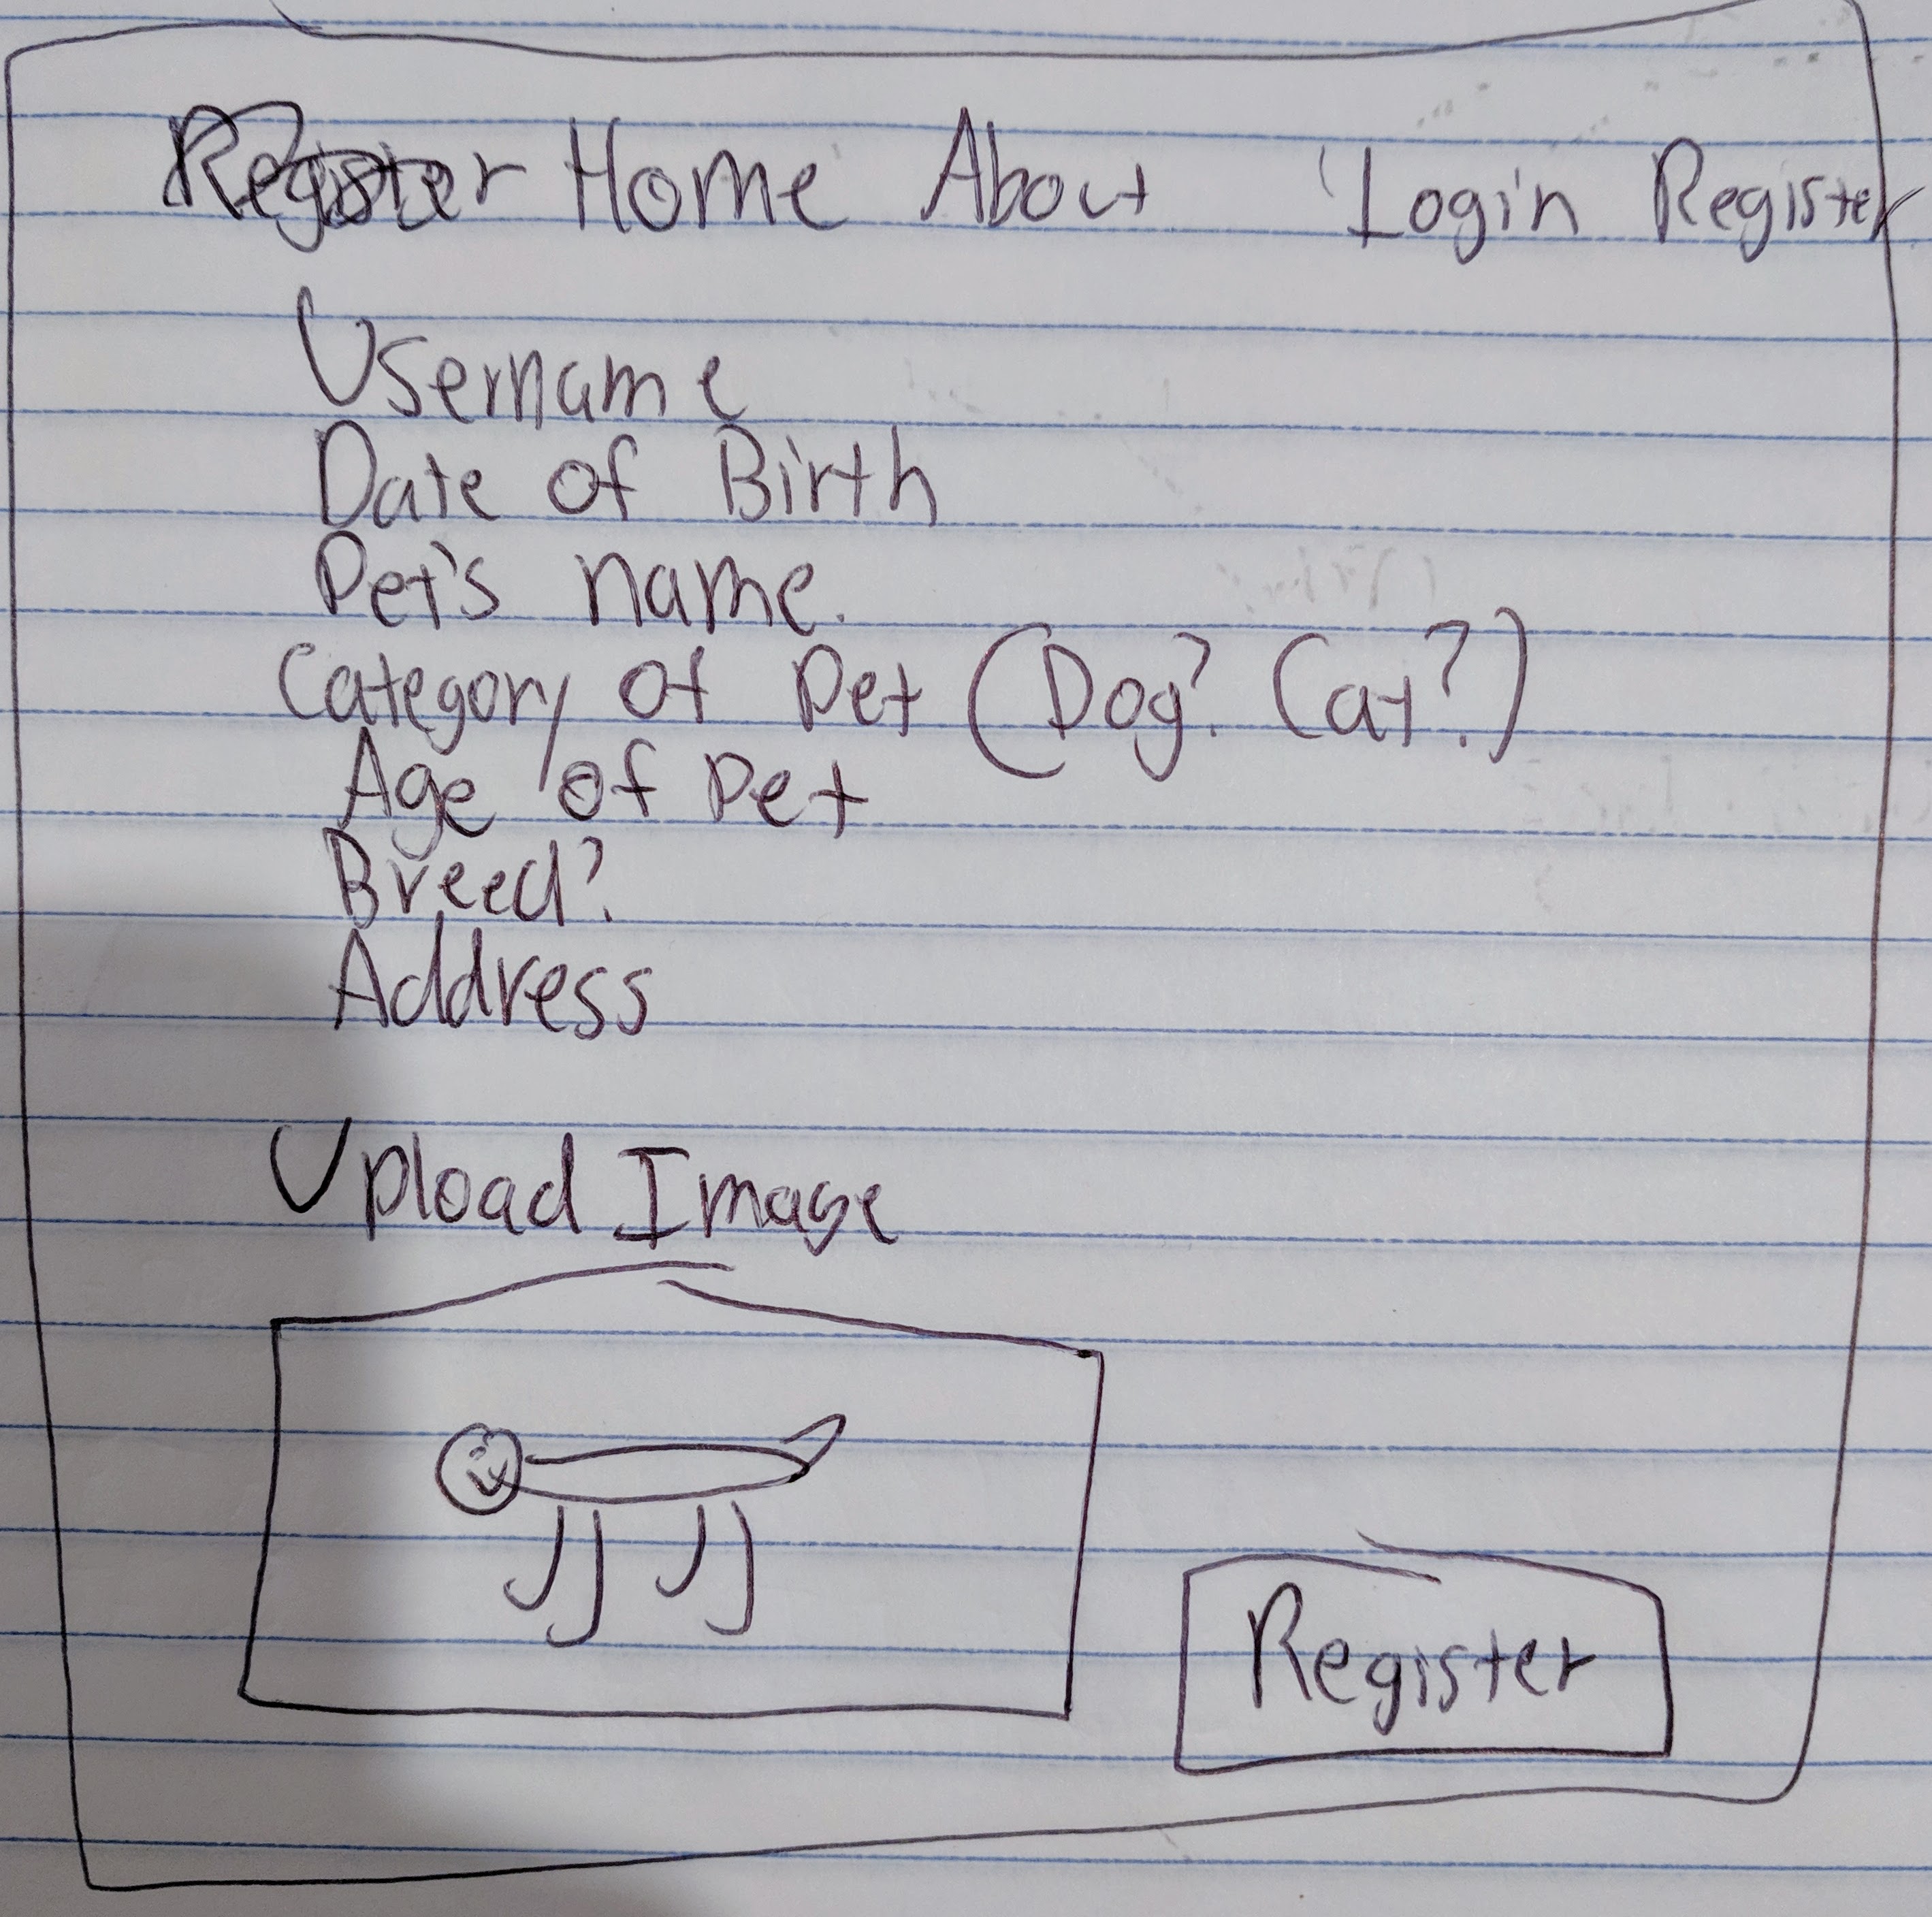 Register Home About Login Register
Username
Date of Birth
Pet's name.
Category of Pet (Dog? Cat?)
Age of Pet
Breed?
Address
Upload Image
Register